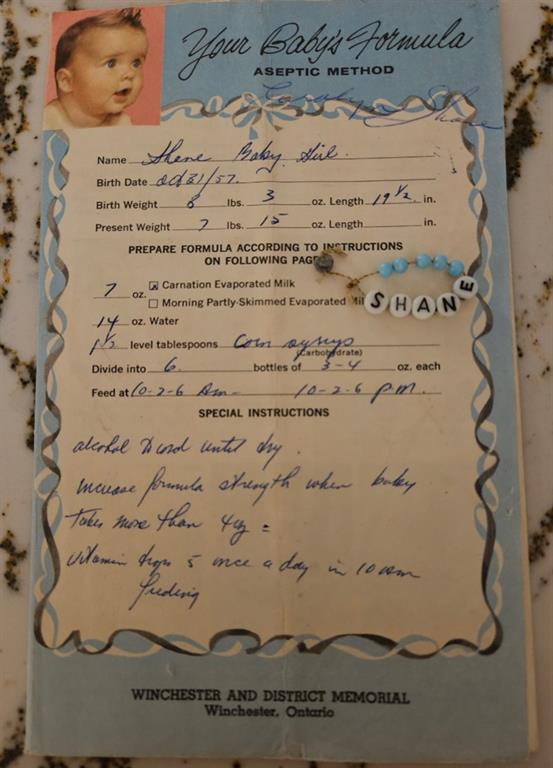 Your Baby's Formula
ASEPTIC METHOD
Shane
Name Shane Baby Girl.
Birth Date Oct 31/57.
Birth Weight 8 lbs. 3 oz. Length 19 1/2 in.
Present Weight 7 lbs. 15 oz. Length in.
PREPARE FORMULA ACCORDING TO INSTRUCTIONS
ON FOLLOWING PAGE
7 oz. Carnation Evaporated Milk
Morning Partly-Skimmed Evaporated Mil
SHANE
14 oz. Water
1 1/2 level tablespoons Corn syrup
(Carbohydrate)
Divide into 6 bottles of 3-4 oz. each
Feed at 10-2-6 Am- 10-2-6 pm.
SPECIAL INSTRUCTIONS
alcohol to cord until dry.
increase formula strength when baby
takes more than 4oz =
vitamin drops 5 once a day in 10 am
feeding
WINCHESTER AND DISTRICT MEMORIAL
Winchester, Ontario